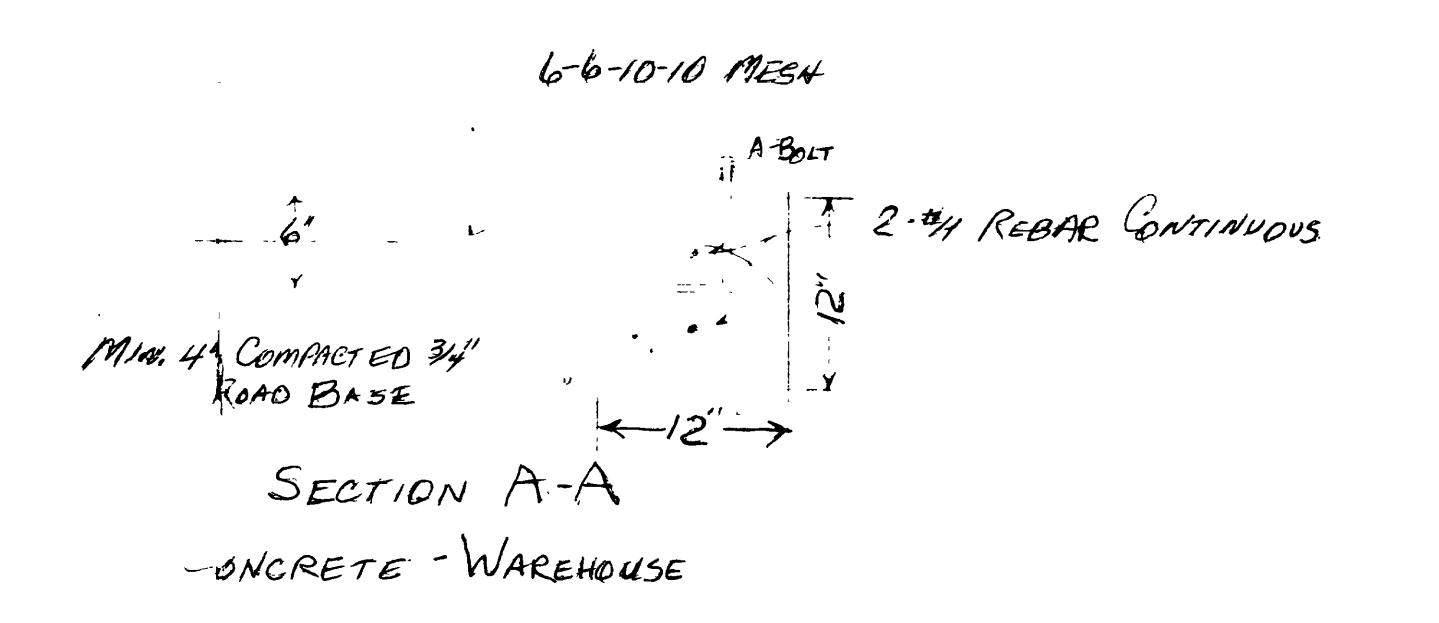 6-6-10-10 MESH
A-BOLT
6"
2-#4 REBAR CONTINUOUS
12"
MIN. 4" COMPACTED 3/4"
ROAD BASE
12"
SECTION A-A
ONCRETE - WAREHOUSE